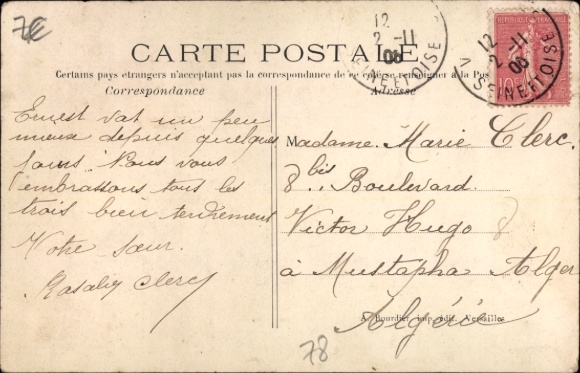 7€
CARTE POSTALE
Certains pays etrangers n'acceptant pas la correspondance de ce côté se renseigner à la Pos
Correspondance
Adresse
12
2-11
06
SEINE ET OISE
12
2-11
06
SEINE ET OISE
REPUBLIQUE FRANÇAISE
10
Ernest vat un peu
mieux depuis quelques
jours Nous vous
embrassons tous les
trois bien tendrement
Votre sœur.
Rasaly Clerc
Madame Marie Clerc.
8 bis Boulevard
Victor Hugo
8
à Mustapha Alger
Algérie
A. Bourdier imp. édit. Versailles
78